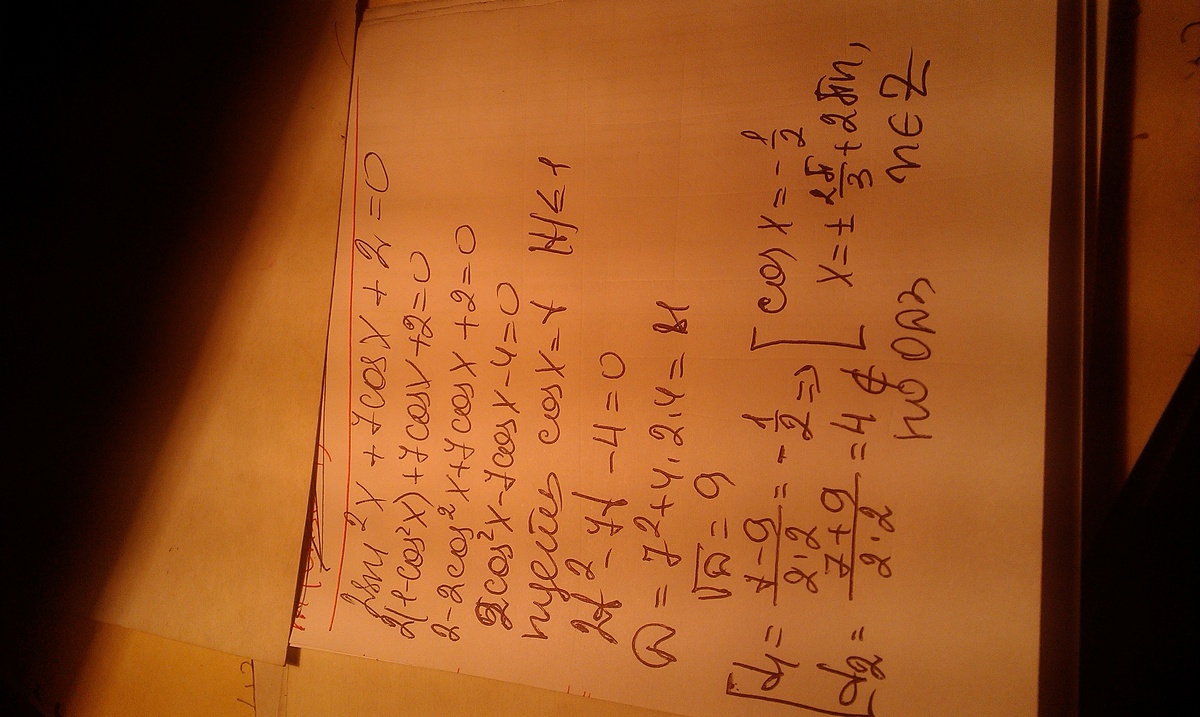 2sin²x + 7cosx + 2 = 0
2(1-cos²x) + 7cosx + 2 = 0
2 - 2cos²x + 7cosx + 2 = 0
2cos²x - 7cosx - 4 = 0
пусть cosx = t |t| ≤ 1
2t² - 7t - 4 = 0
D = 7² + 4·2·4 = 81
√D = 9
[t₁ = (7-9)/(2·2) = -1/2 => [cos x = -1/2
x = ± 2π/3 + 2πn,
t₂ = (7+9)/(2·2) = 4 ∉
по ОДЗ
n ∈ Z